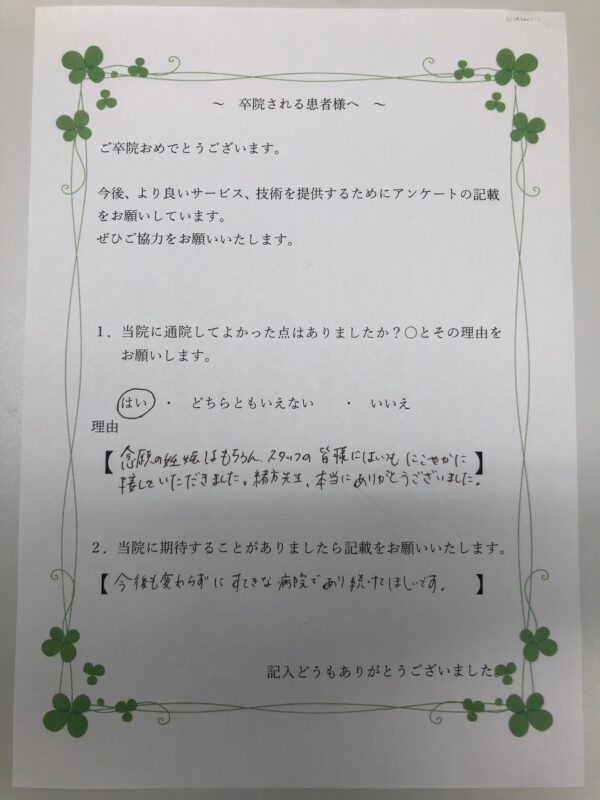 ～　卒院される患者様へ　～
ご卒院おめでとうございます。
今後、より良いサービス、技術を提供するためにアンケートの記載
をお願いしています。
ぜひご協力をお願いいたします。
１．当院に通院してよかった点はありましたか？〇とその理由を
お願いします。
はい　・　どちらともいえない　　・　いいえ
理由
【念願の妊娠はもちろん、スタッフの皆様にはいつもにこやかに
接していただきました。緒方先生、本当にありがとうございました。】
２．当院に期待することがありましたら記載をお願いいたします。
【今後も変わらずにすてきな病院であり続けてほしいです。】
記入どうもありがとうございました。